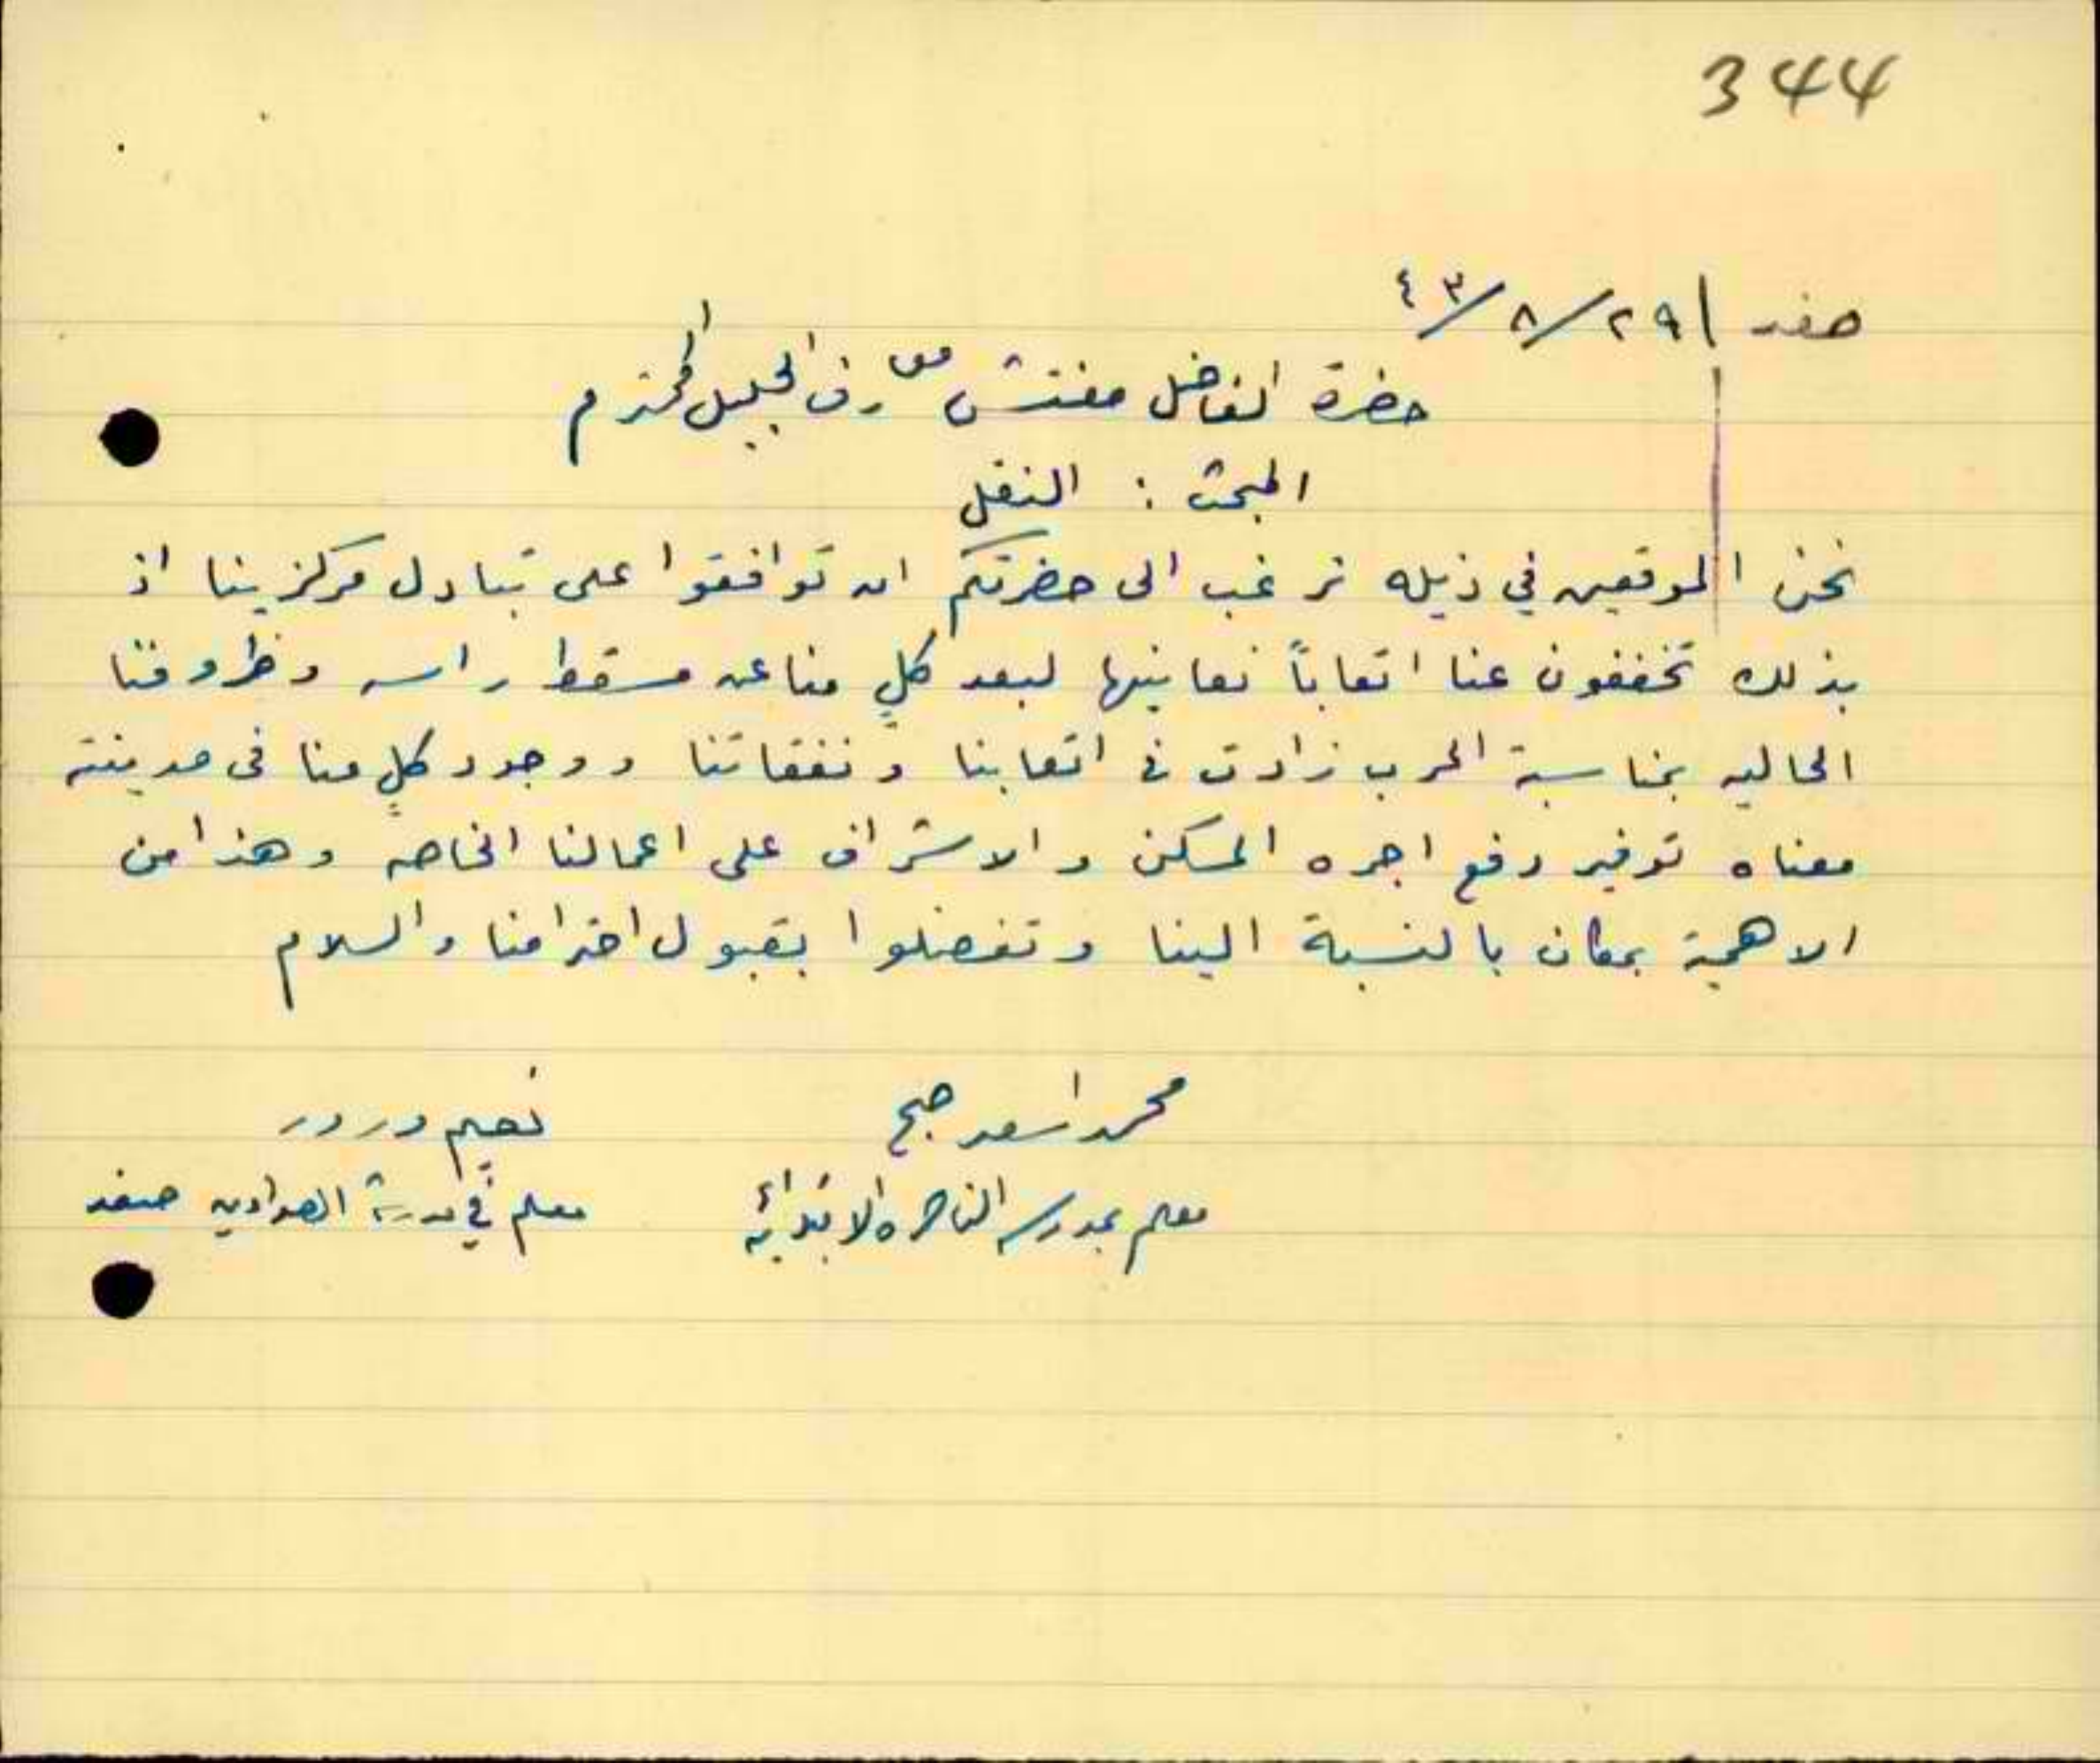 344
صفد ٢٩/٨/٤٣
حضرة الفاضل مفتش معارف الجليل المحترم
المبحث : النقل
نحن الموقعين في ذيله نرغب الى حضرتكم ان توافقوا على تبادل مركزينا اذ
بذلك تخففون عنا اتعاباً نعانيها لبعد كلٍ منا عن مسقط راسه وظروفنا
الحاليه بمناسبة الحرب زادت في اتعابنا ونفقاتنا ووجود كلٍ منا في مدينته
معناه توفير دفع اجره المسكن والاشراف على اعمالنا الخاصه وهذا من
الاهمية بمكان بالنسبة الينا وتفضلوا بقبول احترامنا والسلام
محمد اسعد صبح
نعيم درور
معلم بمدرسه الناصره الابتدائيه
معلم في مدرسة الصواوين صفد